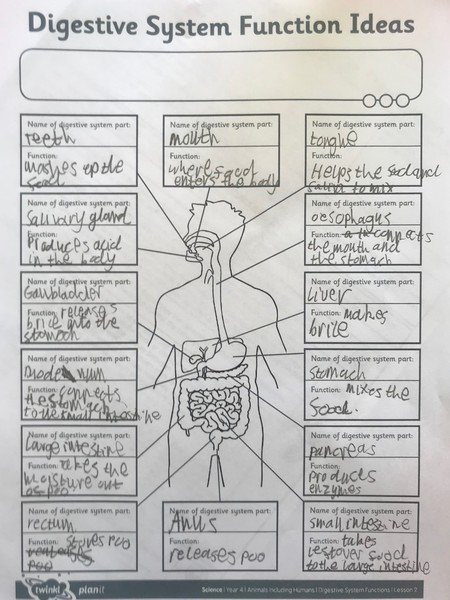 Digestive System Function Ideas
Name of digestive system part:
teeth
Function:
mashes up the
food
Name of digestive system part:
mouth
Function:
where food
enters the body
Name of digestive system part:
tongue
Function:
Helps the food and
saliva to mix
Name of digestive system part:
Salivary gland
Function:
Produces acid
in the body
Name of digestive system part:
oesophagus
Function: connects
the mouth and
the stomach
Name of digestive system part:
Gallbladder
Function: releases
brile into the
stomach
Name of digestive system part:
Liver
Function: makes
brile
Name of digestive system part:
Function: connects
the stomach
to the small intestine
Name of digestive system part:
stomach
Function: mixes the
food.
Name of digestive system part:
Large intestine
Function: takes the
moisture out
of poo
Name of digestive system part:
pancreas
Function:
produces
enzymes
Name of digestive system part:
rectum
Function: stores poo
Name of digestive system part:
Anus
Function:
releases poo
Name of digestive system part:
small intestine
Function: takes
leftover food
to the large intestine
twinkl planit
Science | Year 4 | Animals Including Humans | Digestive System Functions | Lesson 2